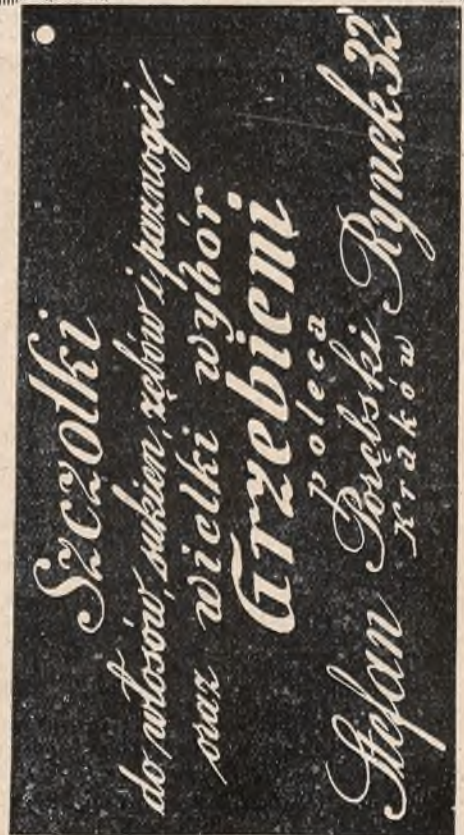 Szczotki
do włosów, sukien, zębów i paznogci,
oraz wielki wybór
Grzebieni
poleca
Stefan Porębski Rynek 32
Kraków